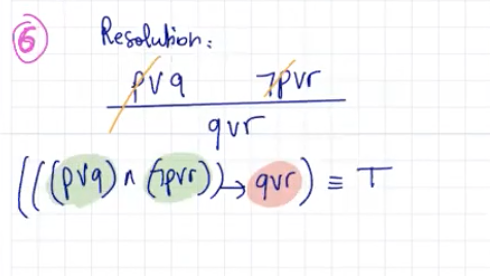 6
Resolution:
p∨q ¬p∨r
q∨r
(((p∨q) ∧ (¬p∨r)) → q∨r) ≡ T